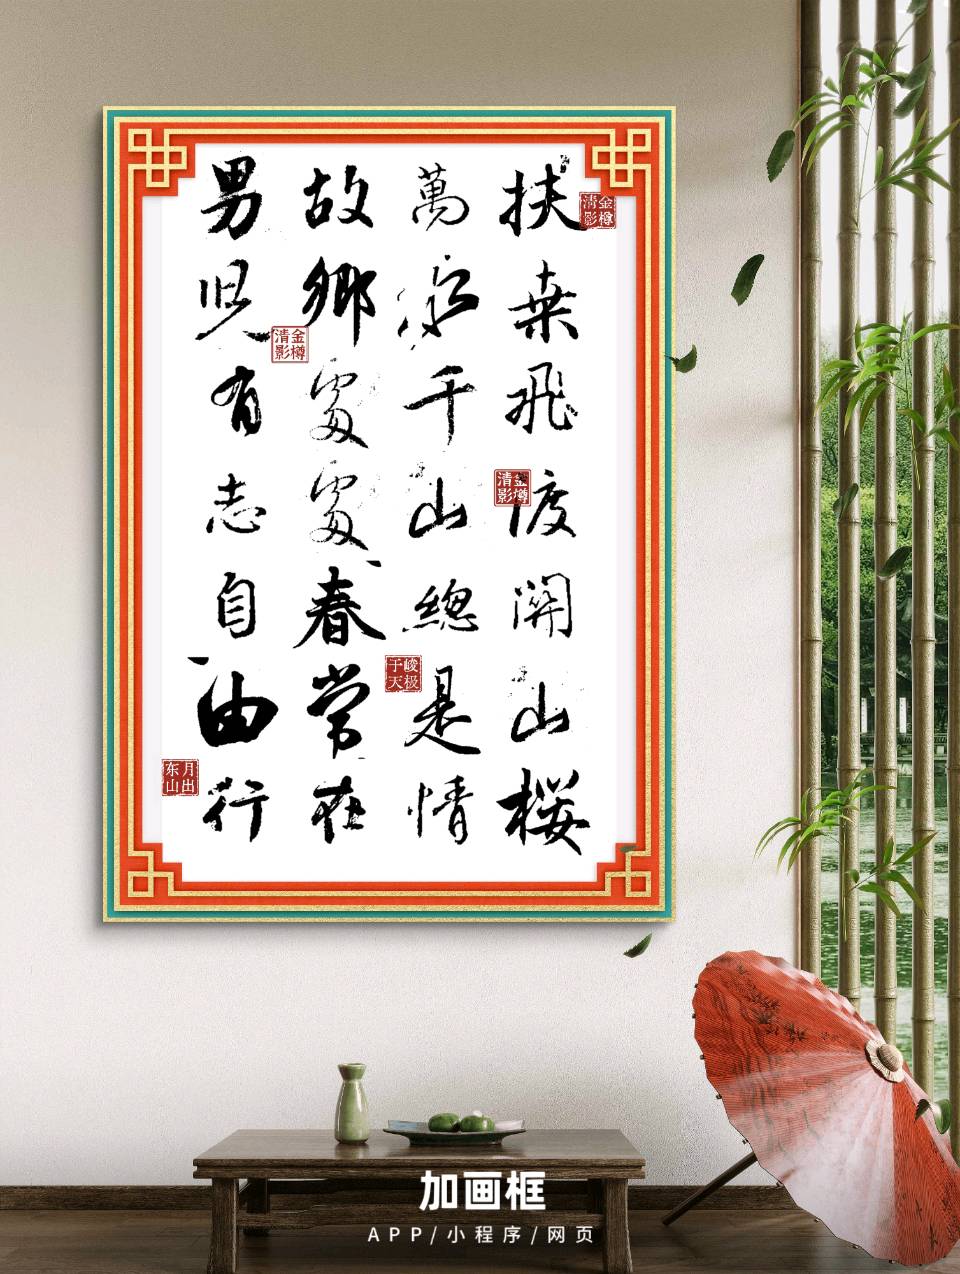 扶桒飛渡関山桜
萬水千山總是情
故鄉處處春常在
男児有志自由行
金樽清影
金樽清影
金樽清影
峻极于天
月出东山
加画框
APP/小程序/网页